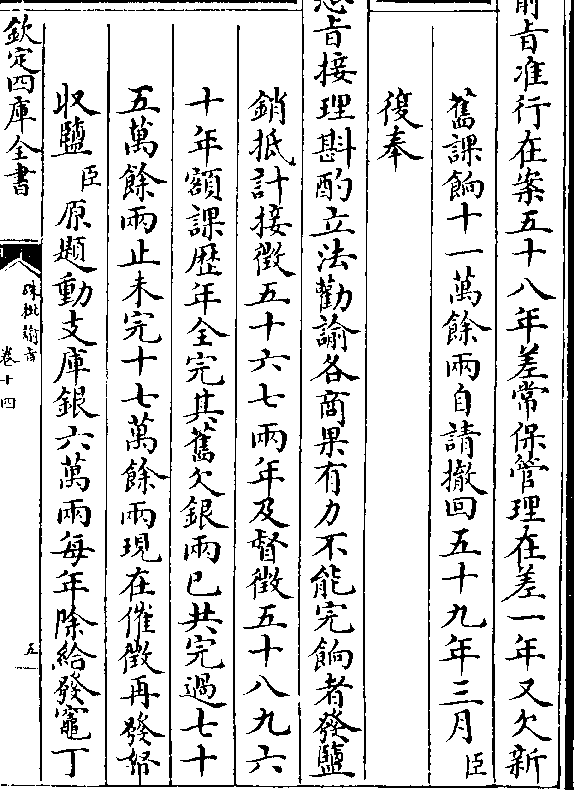 前旨准行在案五十八年差常保管理在差一年又欠新
舊課餉十一萬餘兩自請撤回五十九年三月臣
復奉
恩旨接理斟酌立法勸諭各商果有力不能完餉者發鹽
銷抵計接徵五十六七兩年及督徵五十八九六
十年額課歷年全完其舊欠銀兩已共完過七十
五萬餘兩止未完十七萬餘兩現在催徵再發帑
收鹽臣原題動支庫銀六萬兩每年除給發竈丁
欽定四庫全書
硃批諭旨
卷十四
五